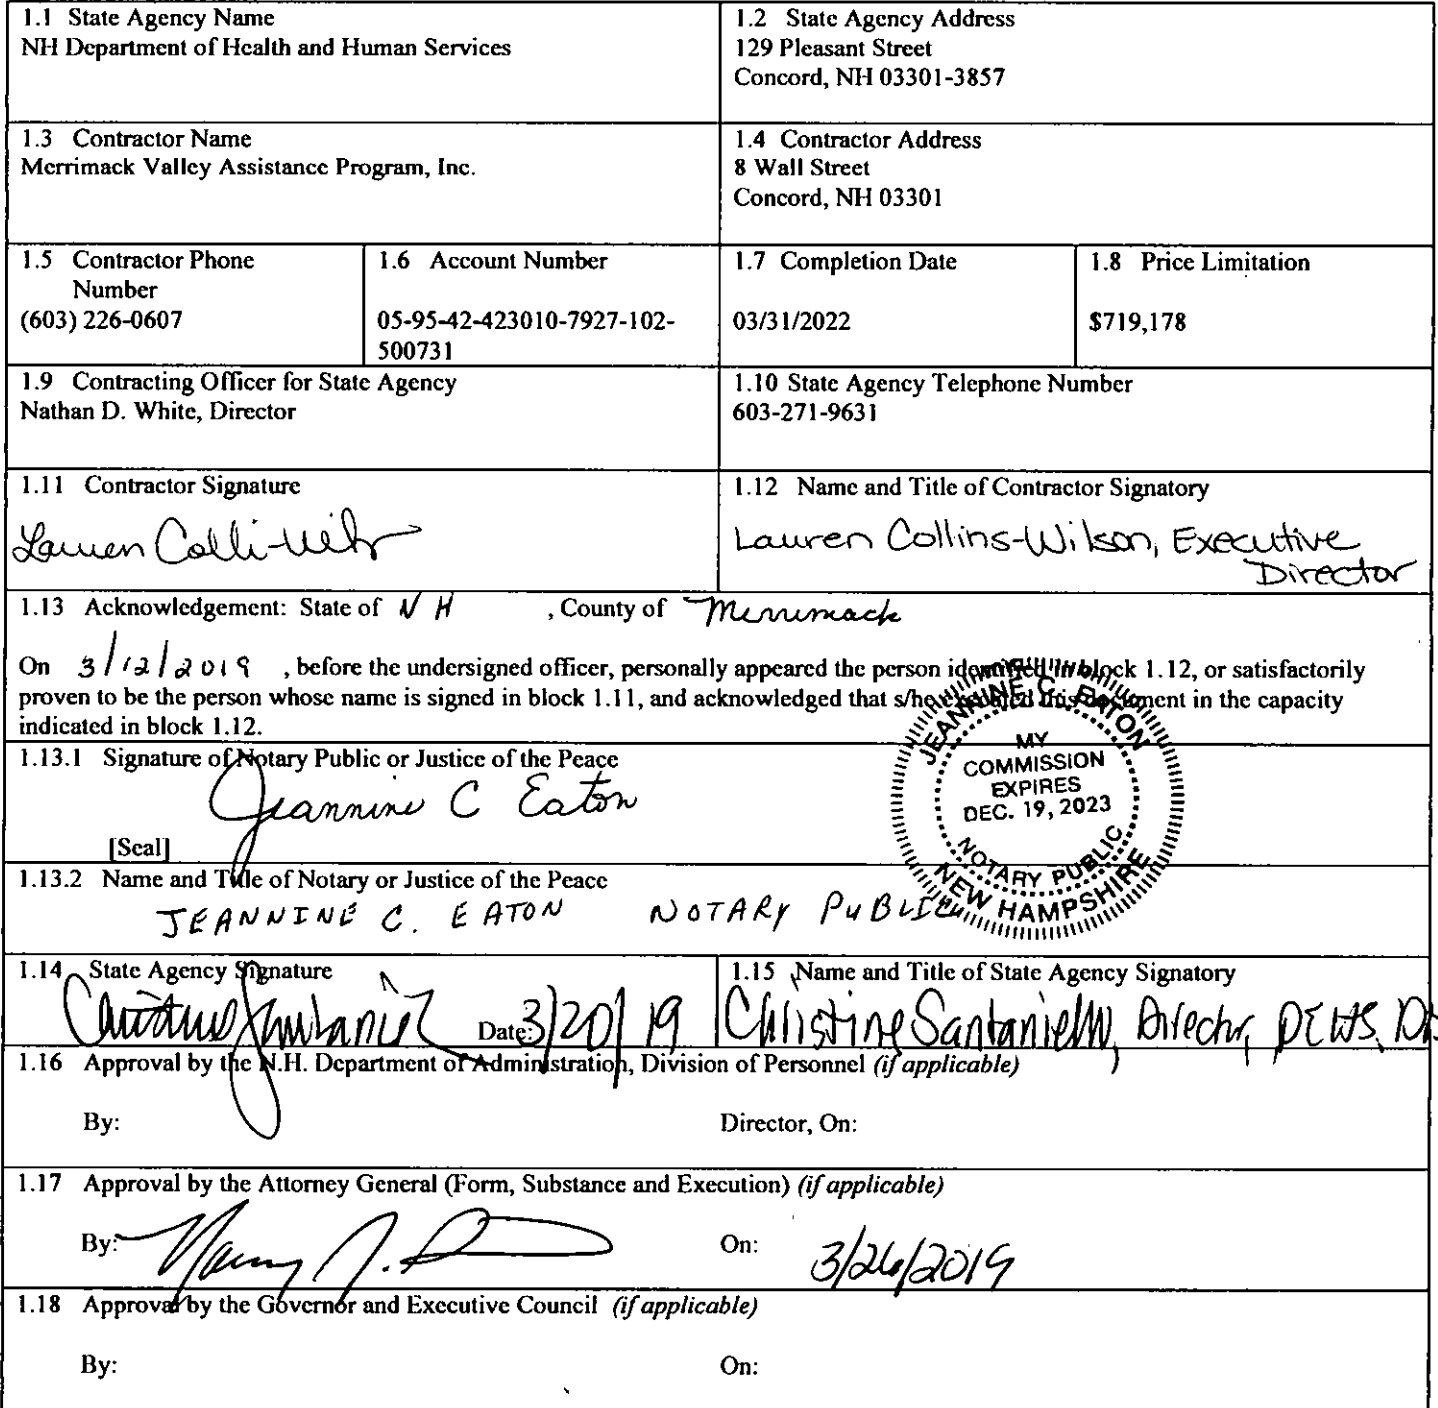 1.1 State Agency Name
NH Department of Health and Human Services
1.2 State Agency Address
129 Pleasant Street
Concord, NH 03301-3857
1.3 Contractor Name
Merrimack Valley Assistance Program, Inc.
1.4 Contractor Address
8 Wall Street
Concord, NH 03301
1.5 Contractor Phone
Number
(603) 226-0607
1.6 Account Number
05-95-42-423010-7927-102-
500731
1.7 Completion Date
03/31/2022
1.8 Price Limitation
$719,178
1.9 Contracting Officer for State Agency
Nathan D. White, Director
1.10 State Agency Telephone Number
603-271-9631
1.11 Contractor Signature
1.12 Name and Title of Contractor Signatory
Lauren Collins-Wilson, Executive
Director
1.13 Acknowledgement: State of NH , County of Merrimack
On 3/12/2019 , before the undersigned officer, personally appeared the person identified in block 1.12, or satisfactorily
proven to be the person whose name is signed in block 1.11, and acknowledged that s/he executed this document in the capacity
indicated in block 1.12.
1.13.1 Signature of Notary Public or Justice of the Peace
Jeannine C Eaton
[Seal]
JEANNINE C. EATON
MY
COMMISSION
EXPIRES
DEC. 19, 2023
NOTARY PUBLIC
NEW HAMPSHIRE
1.13.2 Name and Title of Notary or Justice of the Peace
JEANNINE C. EATON NOTARY PUBLIC
1.14 State Agency Signature
Date: 3/20/19
1.15 Name and Title of State Agency Signatory
Christine Santaniello, Director,
1.16 Approval by the N.H. Department of Administration, Division of Personnel (if applicable)
By:
Director, On:
1.17 Approval by the Attorney General (Form, Substance and Execution) (if applicable)
By:
On: 3/26/2019
1.18 Approval by the Governor and Executive Council (if applicable)
By:
On: